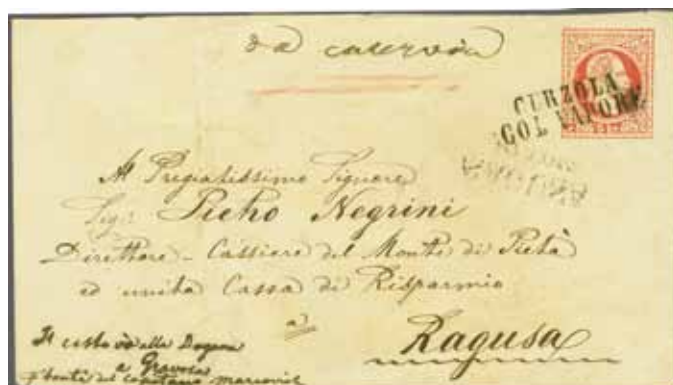 CURZOLA
COL VAPORE
Al Pregiatissimo Signore
Sig: Pietro Negrini
Direttore - Cassiere del Monte di Pietà
ed unita Cassa di Risparmio
a
Ragusa
Il cesto alla Dogana
a Gravosa
bontà del capitano